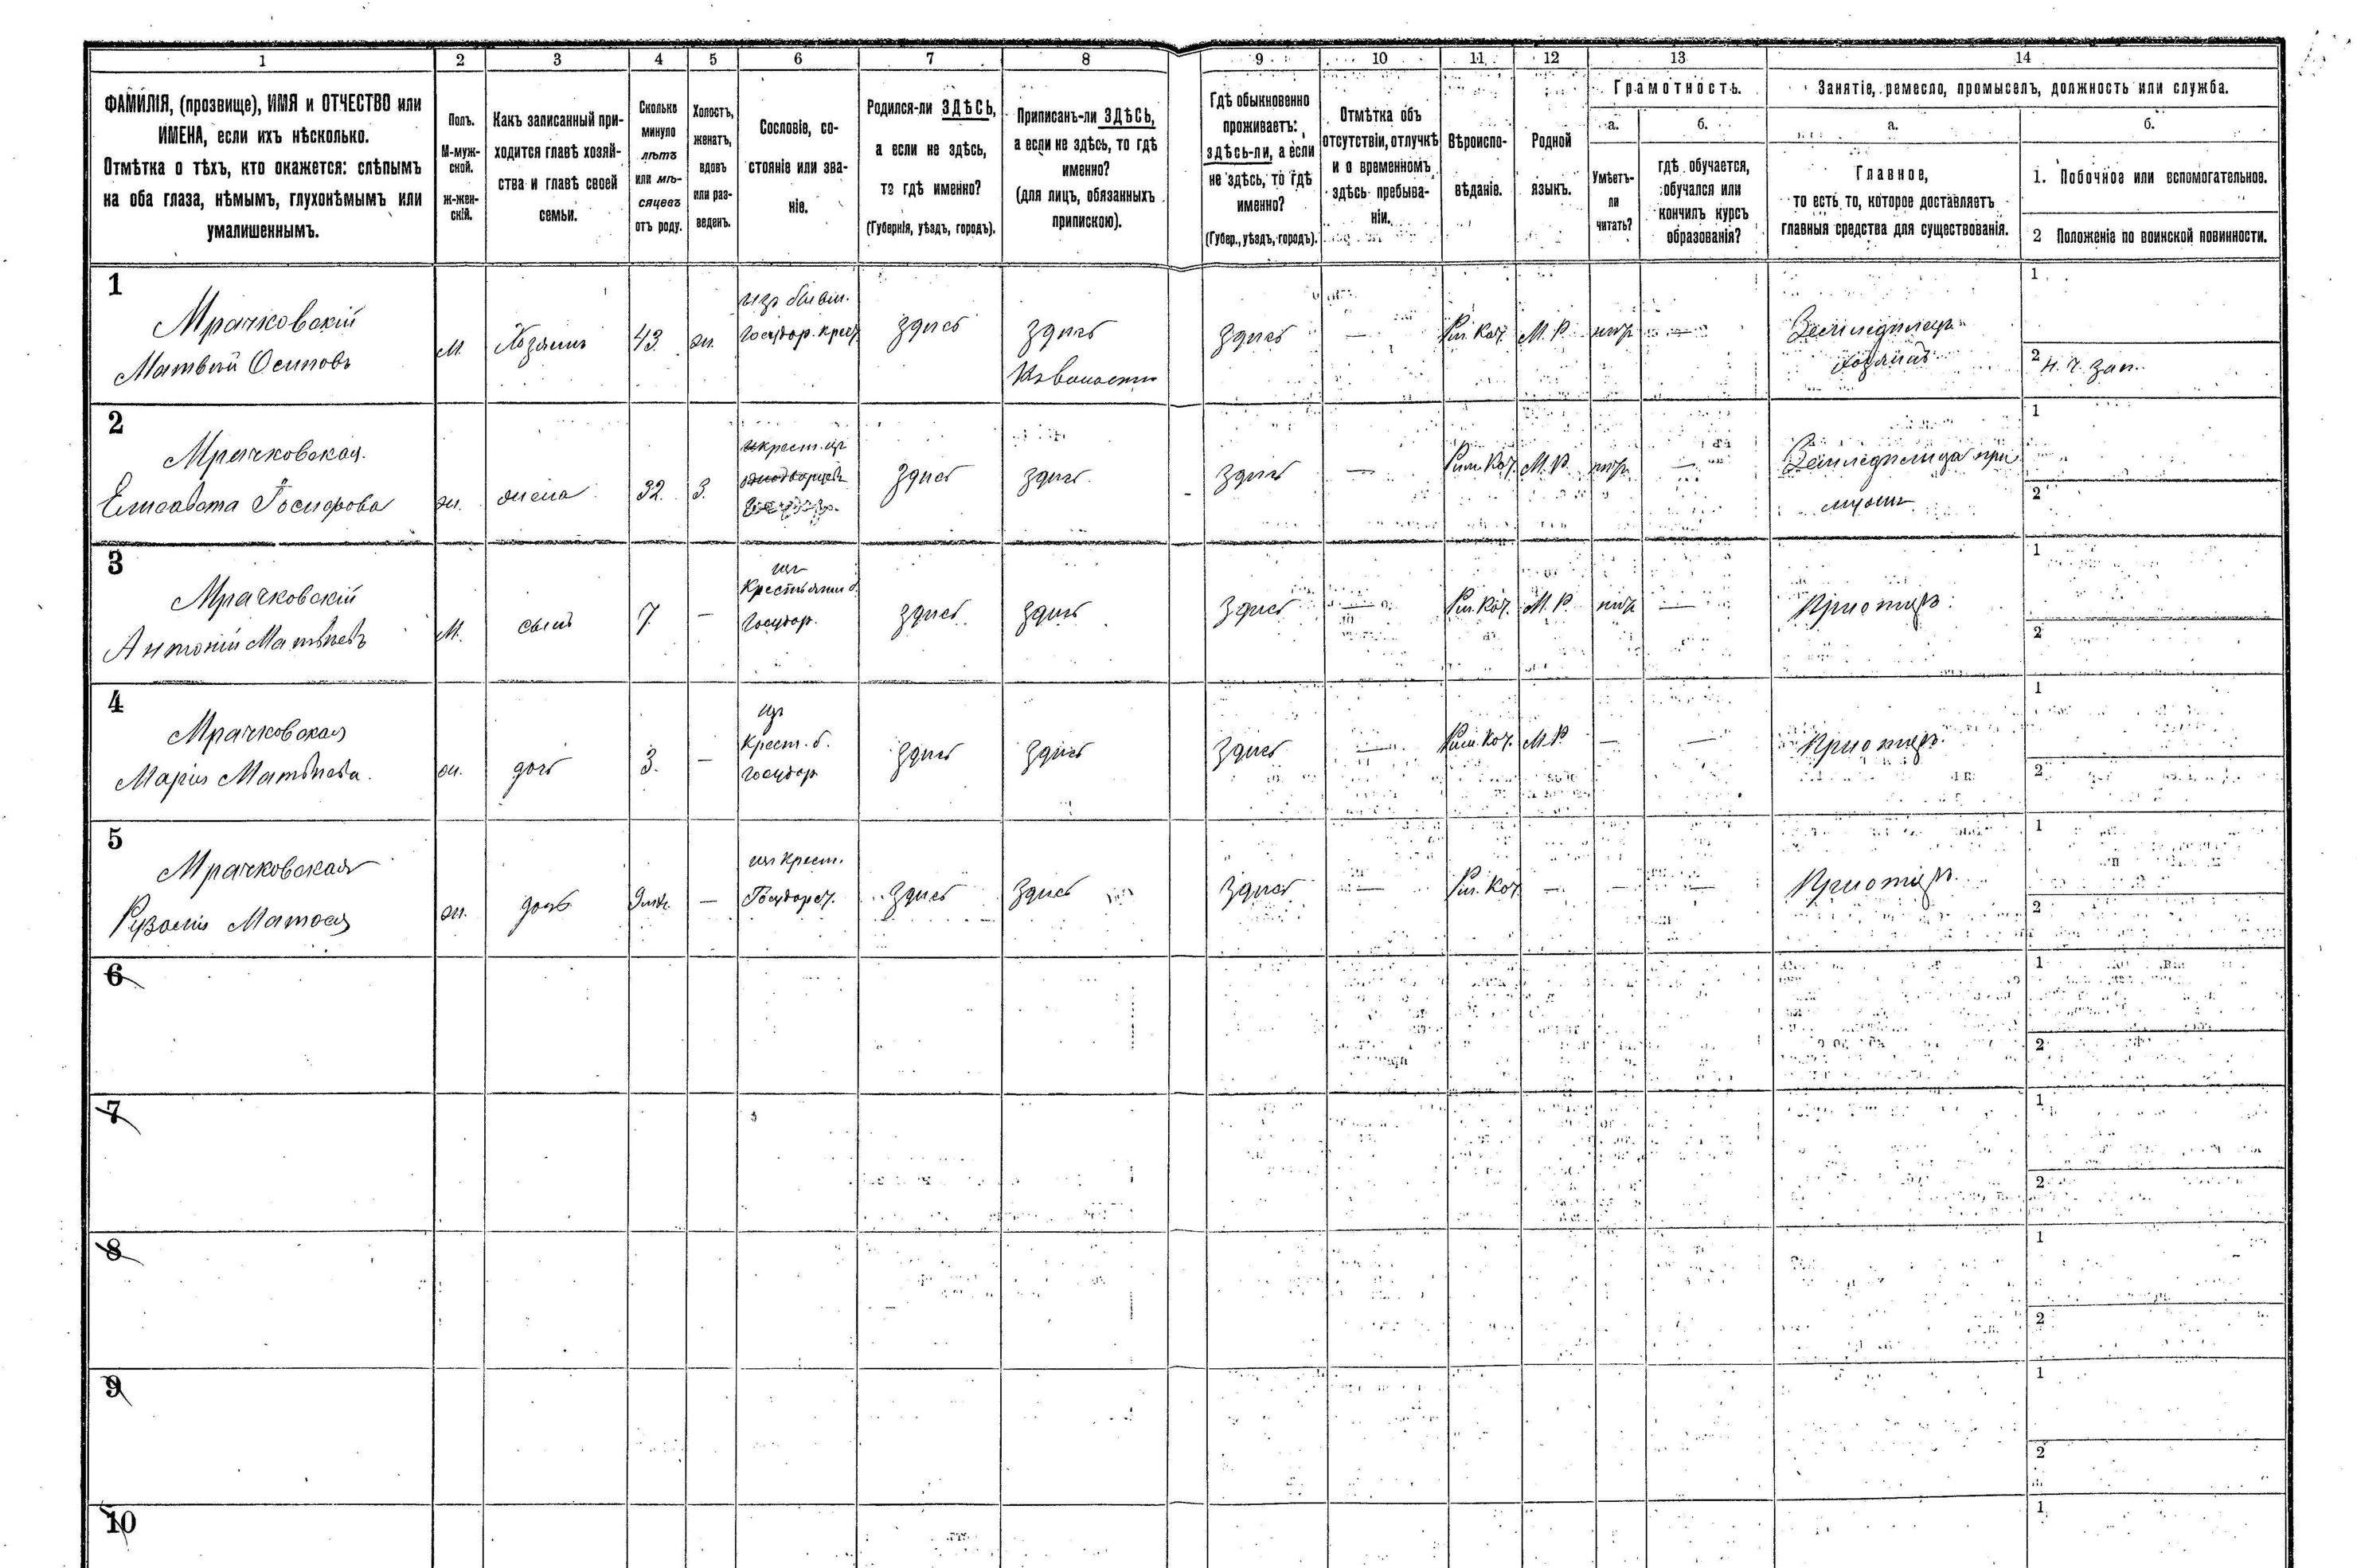 1 2 3 4 5 6 7 8 9 10 11 12 13 14
ФАМИЛІЯ, (прозвище), ИМЯ и ОТЧЕСТВО или
ИМЕНА, если ихъ нѣсколько.
Отмѣтка о тѣхъ, кто окажется: слѣпымъ
на оба глаза, нѣмымъ, глухонѣмымъ или
умалишеннымъ.
Полъ.
М-муж-
ской.
ж-жен-
скій.
Какъ записанный при-
ходится главѣ хозяй-
ства и главѣ своей
семьи.
Сколько
минуло
лѣтъ
или мѣ-
сяцевъ
отъ роду.
Холостъ,
женатъ,
вдовъ
или раз-
веденъ.
Сословіе, со-
стояніе или зва-
ніе.
Родился-ли ЗДѢСЬ,
а если не здѣсь,
то гдѣ именно?
(Губернія, уѣздъ, городъ).
Приписанъ-ли ЗДѢСЬ,
а если не здѣсь, то гдѣ
именно?
(для лицъ, обязанныхъ
припискою).
Гдѣ обыкновенно
проживаетъ:
здѣсь-ли, а если
не здѣсь, то гдѣ
именно?
(Губер., уѣздъ, городъ).
Отмѣтка объ
отсутствіи, отлучкѣ
и о временномъ
здѣсь пребыва-
ніи.
Вѣроиспо-
вѣданіе.
Родной
языкъ.
Грамотность.
а.
Умѣетъ-
ли
читать?
б.
гдѣ обучается,
обучался или
кончилъ курсъ
образованія?
Занятіе, ремесло, промыселъ, должность или служба.
а.
Главное,
то есть то, которое доставляетъ
главныя средства для существованія.
б.
1. Побочное или вспомогательное.
2 Положеніе по воинской повинности.
1
Мрачковскій
Матвѣй Осиповъ
м.
Хозяинъ
43
ж.
изъ бывш.
Государ. крест.
здѣсь
здѣсь
Къ волости
здѣсь
—
Рим. Кат.
М. Р.
нѣтъ
—
Земледѣлецъ
хозяинъ
1
2 н. ч. зап.
2
Мрачковская
Елисавета Іосифова
ж.
жена
32.
З.
крест. из
здѣсь
здѣсь
здѣсь
—
Рим. Кат.
М. Р.
нѣтъ
—
Земледѣлица при
мужѣ
1
2
3
Мрачковскій
Антоній Матвѣевъ
М.
сынъ
7
—
изъ
Крестьянъ б.
Государ.
здѣсь
здѣсь
здѣсь
—
Рим. Кат.
М. Р.
нѣтъ
—
При отцѣ
1
2
4
Мрачковская
Марія Матвѣева.
ж.
дочь
3.
—
изъ
Крест. б.
Государ
здѣсь
здѣсь
здѣсь
—
Рим. Кат.
М. Р.
—
—
При отцѣ
1
2
5
Мрачковская
ж.
дочь
—
из Крест.
здѣсь
здѣсь
здѣсь
—
Рим. Кат
—
—
—
При отцѣ
1
2
6
1
2
7
1
2
8
1
2
9
1
2
10
1